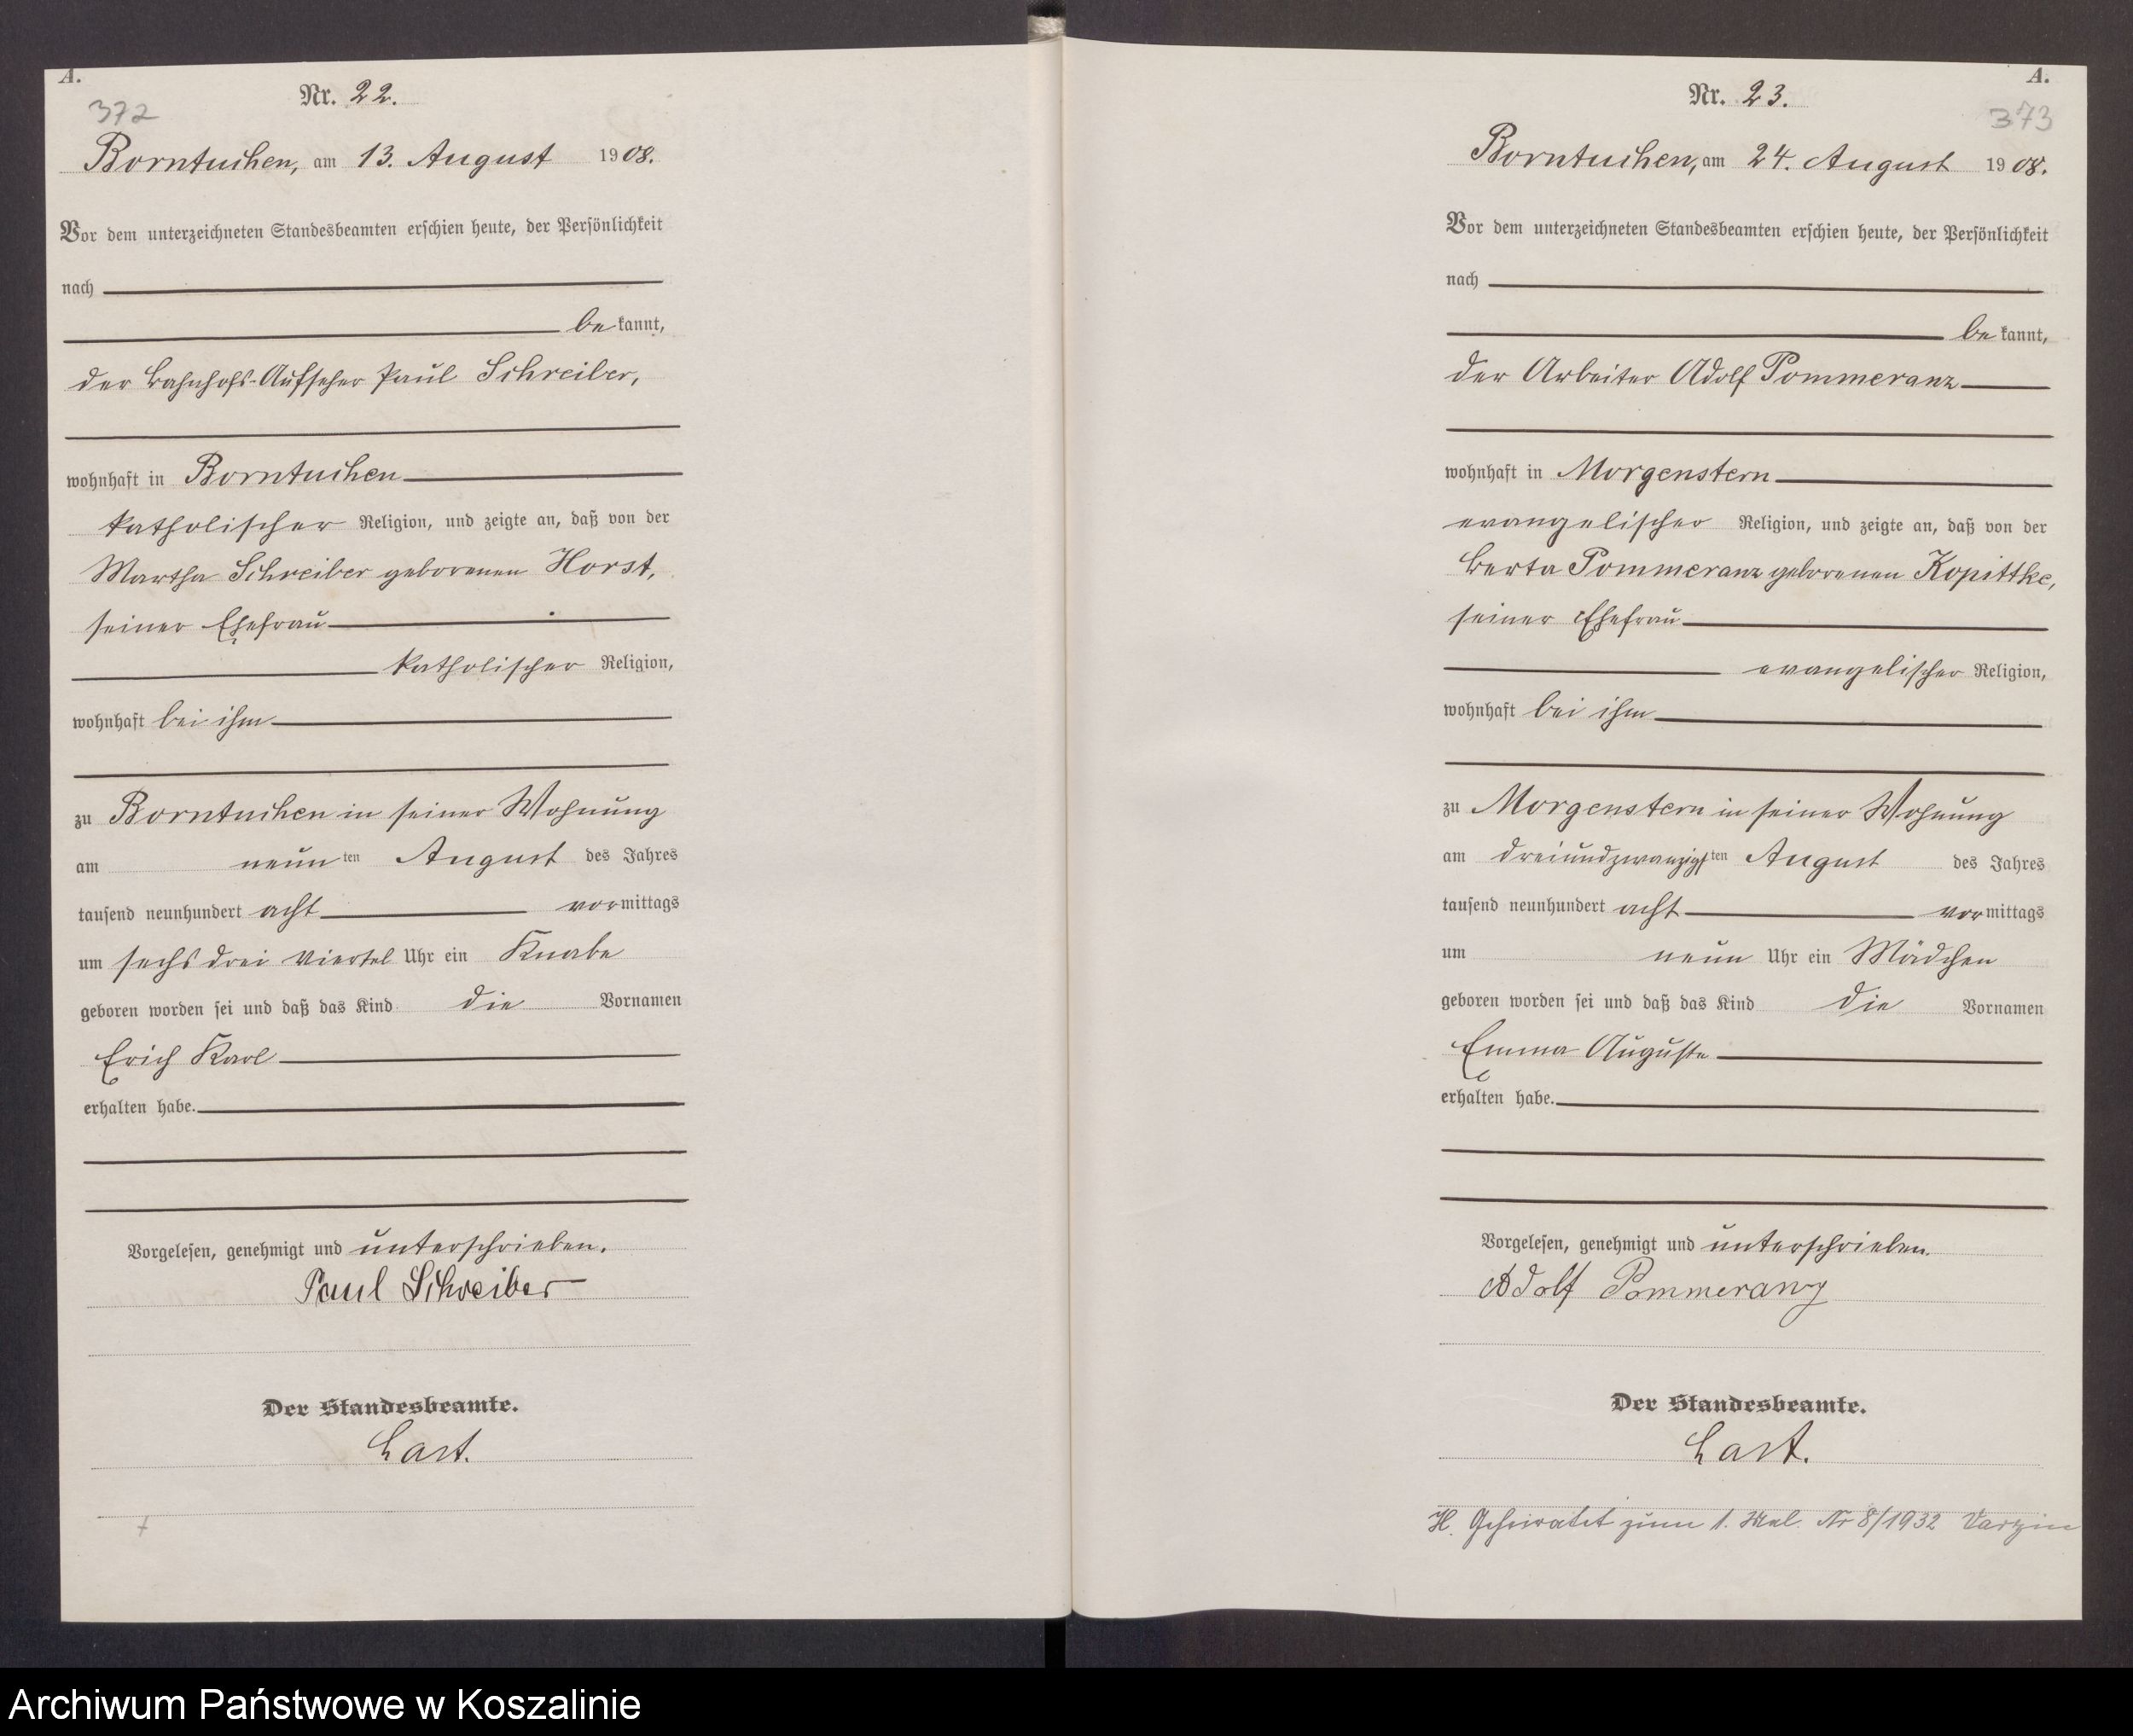 A.
372
Nr. 22.
Borntuchen, am 13. August 1908.
Vor dem unterzeichneten Standesbeamten erschien heute, der Persönlichkeit
nach
bekannt,
der Bahnhofs-Aufseher Paul Schreiber,
wohnhaft in Borntuchen
katholischer Religion, und zeigte an, daß von der
Martha Schreiber geborenen Horst,
seiner Ehefrau
katholischer Religion,
wohnhaft bei ihm
zu Borntuchen in seiner Wohnung
am neunten August des Jahres
tausend neunhundert acht vormittags
um sechs drei Viertel Uhr ein Knabe
geboren worden sei und daß das Kind die Vornamen
Erich Karl
erhalten habe.
Vorgelesen, genehmigt und unterschrieben.
Paul Schreiber
Der Standesbeamte.
Last.
A.
373
Nr. 23.
Borntuchen, am 24. August 1908.
Vor dem unterzeichneten Standesbeamten erschien heute, der Persönlichkeit
nach
bekannt,
der Arbeiter Adolf Pommeranz
wohnhaft in Morgenstern
evangelischer Religion, und zeigte an, daß von der
Berta Pommeranz geborenen Kopittke,
seiner Ehefrau
evangelischer Religion,
wohnhaft bei ihm
zu Morgenstern in seiner Wohnung
am dreiundzwanzigsten August des Jahres
tausend neunhundert acht vormittags
um neun Uhr ein Mädchen
geboren worden sei und daß das Kind die Vornamen
Emma Auguste
erhalten habe.
Vorgelesen, genehmigt und unterschrieben.
Adolf Pommeranz
Der Standesbeamte.
Last.
H. Geheiratet zum 1. Mal. Nr 8/1932 Varzin
Archiwum Państwowe w Koszalinie